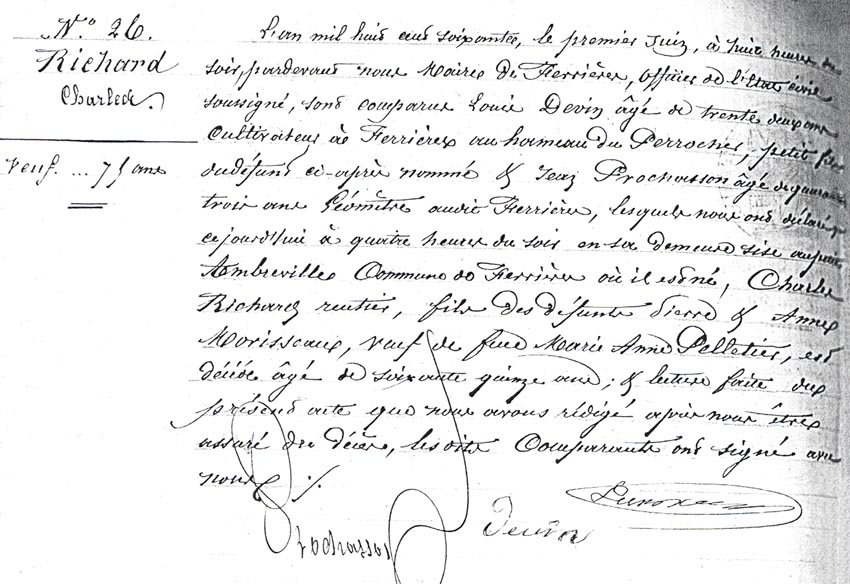 N.° 26.
Richard
Charles.
veuf ... 75 ans
L'an mil huit cent soixante, le premier Juin, à huit heures du
soir, pardevant nous Maire de Ferrières, officier de l'Etat civil
soussigné, sont comparus Louis Devin âgé de trente deux ans
cultivateur à Ferrières au hameau du Perrocher, petit fils
du défunt ci-après nommé & Jean Prochasson âgé de quarante
trois ans Géomètre audit Ferrières, lesquels nous ont déclaré que
cejourd'hui à quatre heures du soir en sa demeure sise au
Ambreville Commune de Ferrières où il est né, Charles
Richard rentier, fils des défunts Pierre & Anne
Morisseaux, veuf de feue Marie Anne Pelletier, est
décédé âgé de soixante quinze ans; & lecture faite du
présent acte que nous avons rédigé après nous être
assuré du décès, lesdits Comparants ont signé avec
nous ./.
Prochasson
Devin